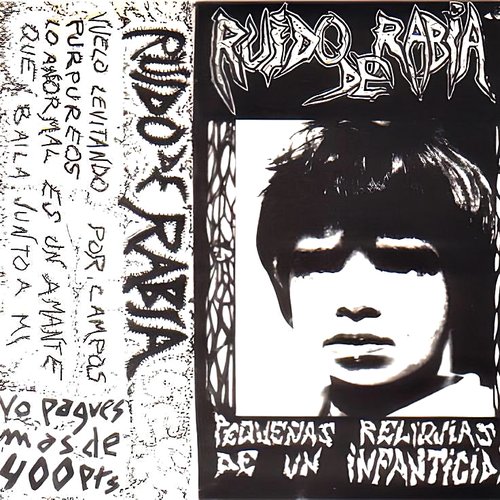 VUELO LEVITANDO POR CAMPOS
PURPUREOS
LO ANORMAL ES UN AMANTE
QUE BAILA JUNTO A MI
No pagues
mas de
400 pts.
RUIDO DE RABIA
RUIDO DE RABIA
PEQUEÑAS RELIQUIAS
DE UN INFANTICIDA